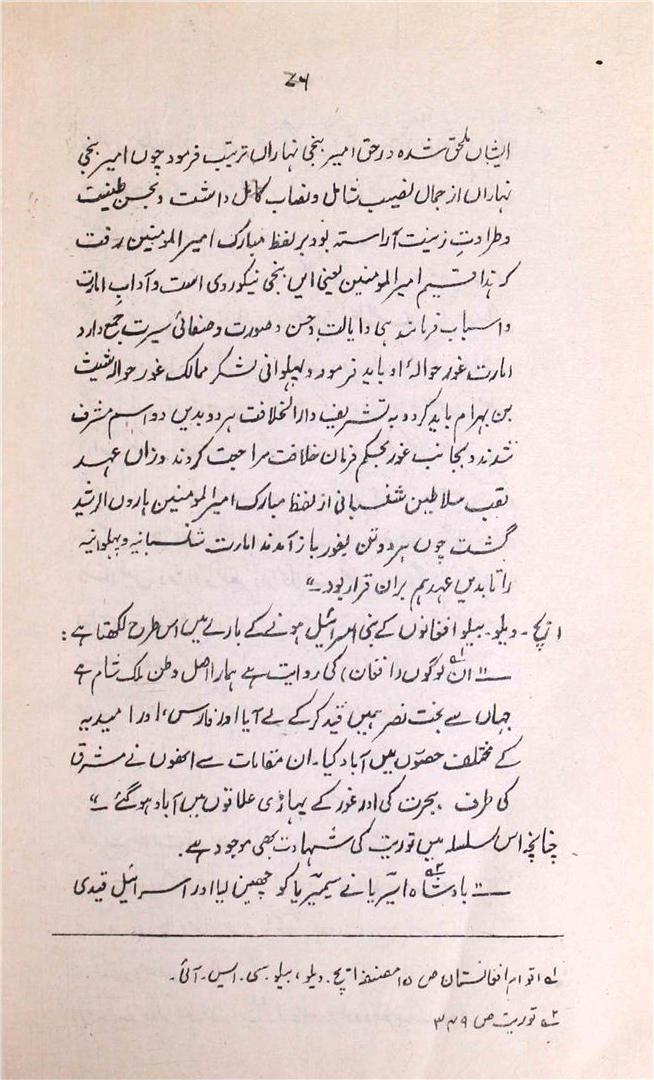 ۷۶
ایشاں ملحق شدہ درحق امیر بنجی نہاراں تربیت فرمود چوں امیر بنجی
نہاراں از جمال نصیب شامل و نصاب کامل داشت و بحسن طینت
و طراوتِ زینت آراستہ بود بر لفظ مبارک امیر المومنین رفت
کہ ہذا قسیم امیر المومنین یعنی ایں بنجی نیکوروی است و آدابِ امارت
و اسباب فرماندہی و ایالت و حسن و صورت و صفائی سیرت جمع دارد
امارت غور حوالۂ او باید فرمود و پہلوانی لشکر ممالک غور حوالہ شیث
بن بہرام باید کرد و بہ تشریف دارالخلافت ہر دو بدیں دو اسم مشرف
شدند و بجانب غور بحکم فرمان خلافت مراجعت کردند و زاں عہد
لقب سلاطین شنسبانی از لفظ مبارک امیر المومنین ہارون الرشید
گشت چوں ہر دو تن بغور باز آمدند امارت شنسبانیہ و پہلوانیہ
را تا بدیں عہد ہم براں قرار بود۔“
ایچ۔ ویلو۔ بیلو افغانوں کے بنی اسرائیل ہونے کے بارے میں اس طرح لکھتا ہے:
—“ ان۱ لوگوں (افغان) کی روایت ہے ہمارا اصل وطن ملک شام ہے
جہاں سے بخت نصر ہمیں قید کر کے لے آیا اور فارس، اور امیدیہ
کے مختلف حصوں میں آباد کیا۔ ان مقامات سے انھوں نے مشرق
کی طرف، ہجرت کی اور غور کے پہاڑی علاقوں میں آباد ہو گئے۔“
چنانچہ اس سلسلہ میں توریت کی شہادت بھی موجود ہے۔
—“ بادشاہ۲ اسیریا نے سیمیریا کو چھین لیا اور اسرائیل قیدی
۱؎ اقوام افغانستان ص ۱۵ مصنفہ ایچ۔ ویلو، بیلو۔ سی۔ ایس۔ آئی۔
۲؎ توریت ص ۳۴۹